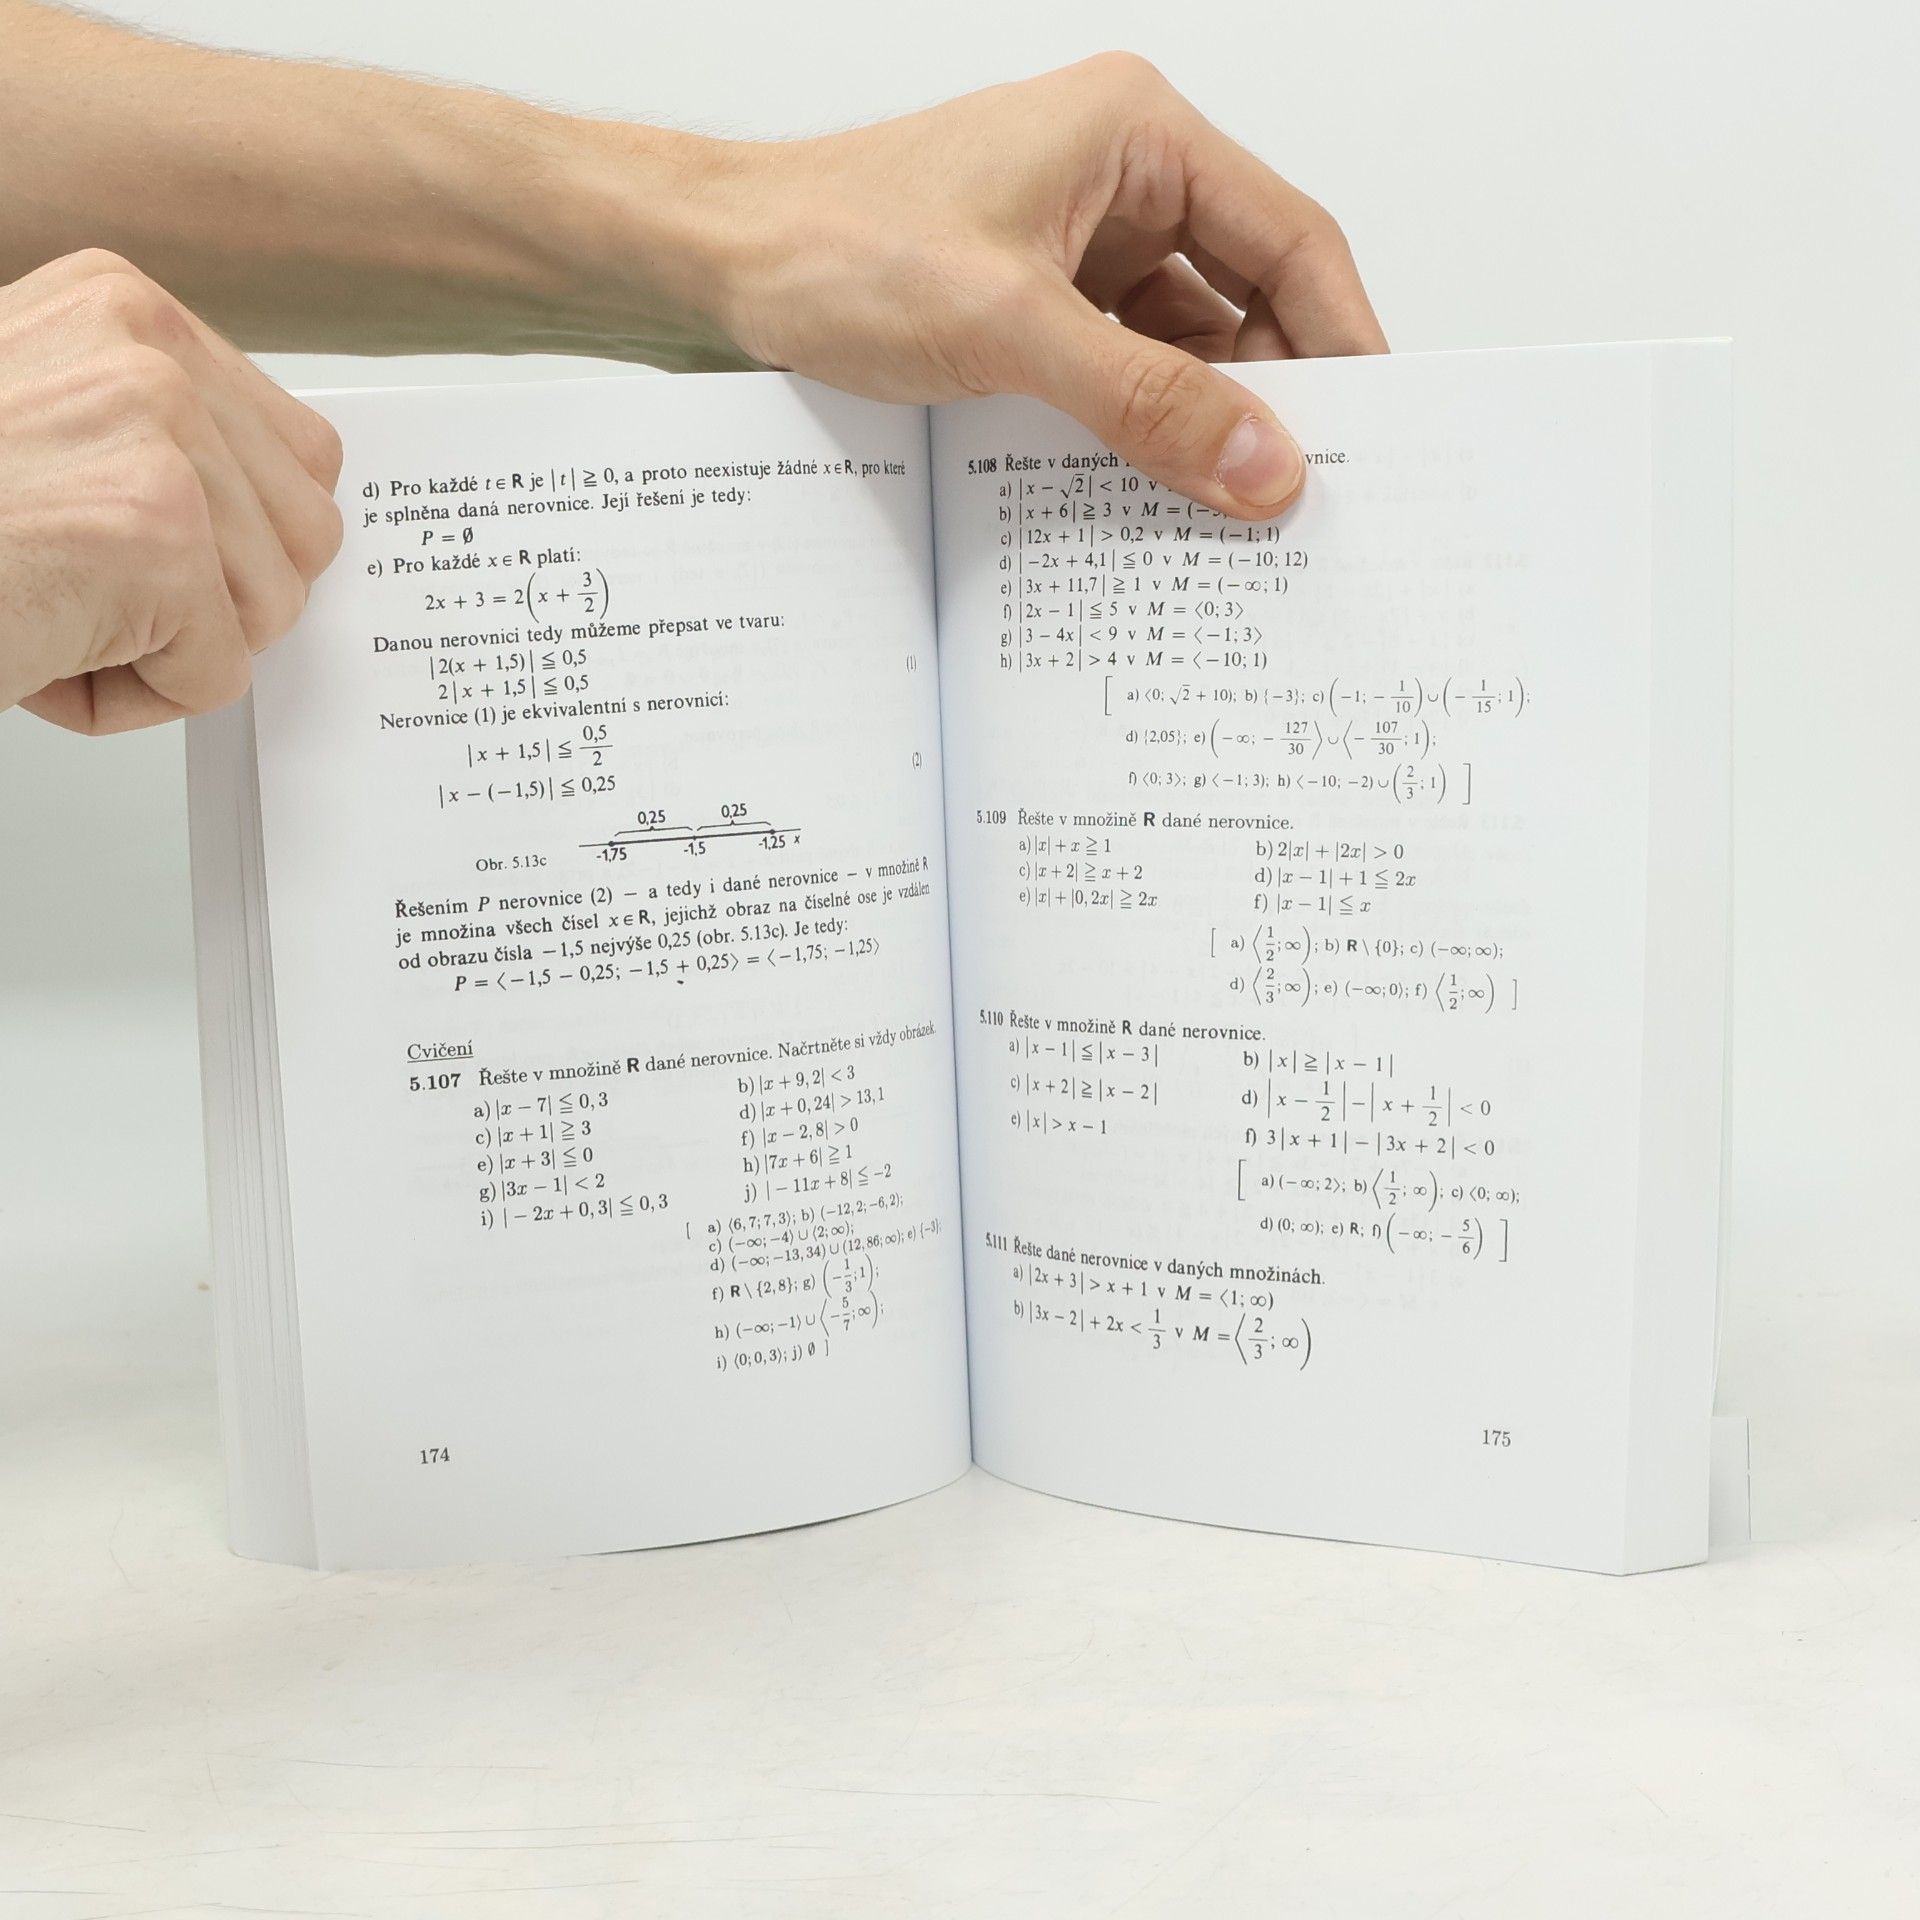 d) Pro každé t ∈ R je |t| ≧ 0, a proto neexistuje žádné x ∈ R, pro které
je splněna daná nerovnice. Její řešení je tedy:
P = ∅
e) Pro každé x ∈ R platí:
2x + 3 = 2(x + 3/2)
Danou nerovnici tedy můžeme přepsat ve tvaru:
|2(x + 1,5)| ≦ 0,5 (1)
2|x + 1,5| ≦ 0,5
Nerovnice (1) je ekvivalentní s nerovnicí:
|x + 1,5| ≦ 0,5/2
|x − (−1,5)| ≦ 0,25 (2)
0,25 0,25
-1,75 -1,5 -1,25 x
Obr. 5.13c
Řešením P nerovnice (2) — a tedy i dané nerovnice — v množině R
je množina všech čísel x ∈ R, jejichž obraz na číselné ose je vzdálen
od obrazu čísla −1,5 nejvýše 0,25 (obr. 5.13c). Je tedy:
P = ⟨−1,5 − 0,25; −1,5 + 0,25⟩ = ⟨−1,75; −1,25⟩
Cvičení
5.107 Řešte v množině R dané nerovnice. Načrtněte si vždy obrázek.
a) |x − 7| ≦ 0,3 b) |x + 9,2| < 3
c) |x + 1| ≧ 3 d) |x + 0,24| > 13,1
e) |x + 3| ≦ 0 f) |x − 2,8| > 0
g) |3x − 1| < 2 h) |7x + 6| ≧ 1
i) |− 2x + 0,3| ≦ 0,3 j) |− 11x + 8| ≦ −2
[ a) ⟨6,7; 7,3⟩; b) (−12,2; −6,2);
c) (−∞; −4⟩ ∪ ⟨2; ∞);
d) (−∞; −13,34) ∪ (12,86; ∞); e) {−3};
f) R \ {2,8}; g) (−1/3; 1);
h) (−∞; −1⟩ ∪ ⟨−5/7; ∞);
i) ⟨0; 0,3⟩; j) ∅ ]
174
5.108 Řešte v daných vnice.
a) |x − √2| < 10 v
b) |x + 6| ≧ 3 v M = (−
c) |12x + 1| > 0,2 v M = (−1; 1)
d) |−2x + 4,1| ≦ 0 v M = (−10; 12)
e) |3x + 11,7| ≧ 1 v M = (−∞; 1)
f) |2x − 1| ≦ 5 v M = ⟨0; 3⟩
g) |3 − 4x| < 9 v M = ⟨−1; 3⟩
h) |3x + 2| > 4 v M = ⟨−10; 1)
[ a) ⟨0; √2 + 10); b) {−3}; c) (−1; −1/10) ∪ (−1/15; 1);
d) {2,05}; e) (−∞; −127/30⟩ ∪ ⟨−107/30; 1);
f) ⟨0; 3⟩; g) ⟨−1; 3); h) ⟨−10; −2) ∪ (2/3; 1) ]
5.109 Řešte v množině R dané nerovnice.
a) |x| + x ≧ 1 b) 2|x| + |2x| > 0
c) |x + 2| ≧ x + 2 d) |x − 1| + 1 ≦ 2x
e) |x| + |0,2x| ≧ 2x f) |x − 1| ≦ x
[ a) ⟨1/2; ∞); b) R \ {0}; c) (−∞; ∞);
d) ⟨2/3; ∞); e) (−∞; 0⟩; f) ⟨1/2; ∞) ]
5.110 Řešte v množině R dané nerovnice.
a) |x − 1| ≦ |x − 3| b) |x| ≧ |x − 1|
c) |x + 2| ≧ |x − 2| d) |x − 1/2| − |x + 1/2| < 0
e) |x| > x − 1 f) 3|x + 1| − |3x + 2| < 0
[ a) (−∞; 2⟩; b) ⟨1/2; ∞); c) ⟨0; ∞);
d) (0; ∞); e) R; f) (−∞; −5/6) ]
5.111 Řešte dané nerovnice v daných množinách.
a) |2x + 3| > x + 1 v M = ⟨1; ∞)
b) |3x − 2| + 2x < 1/3 v M = ⟨2/3; ∞)
175